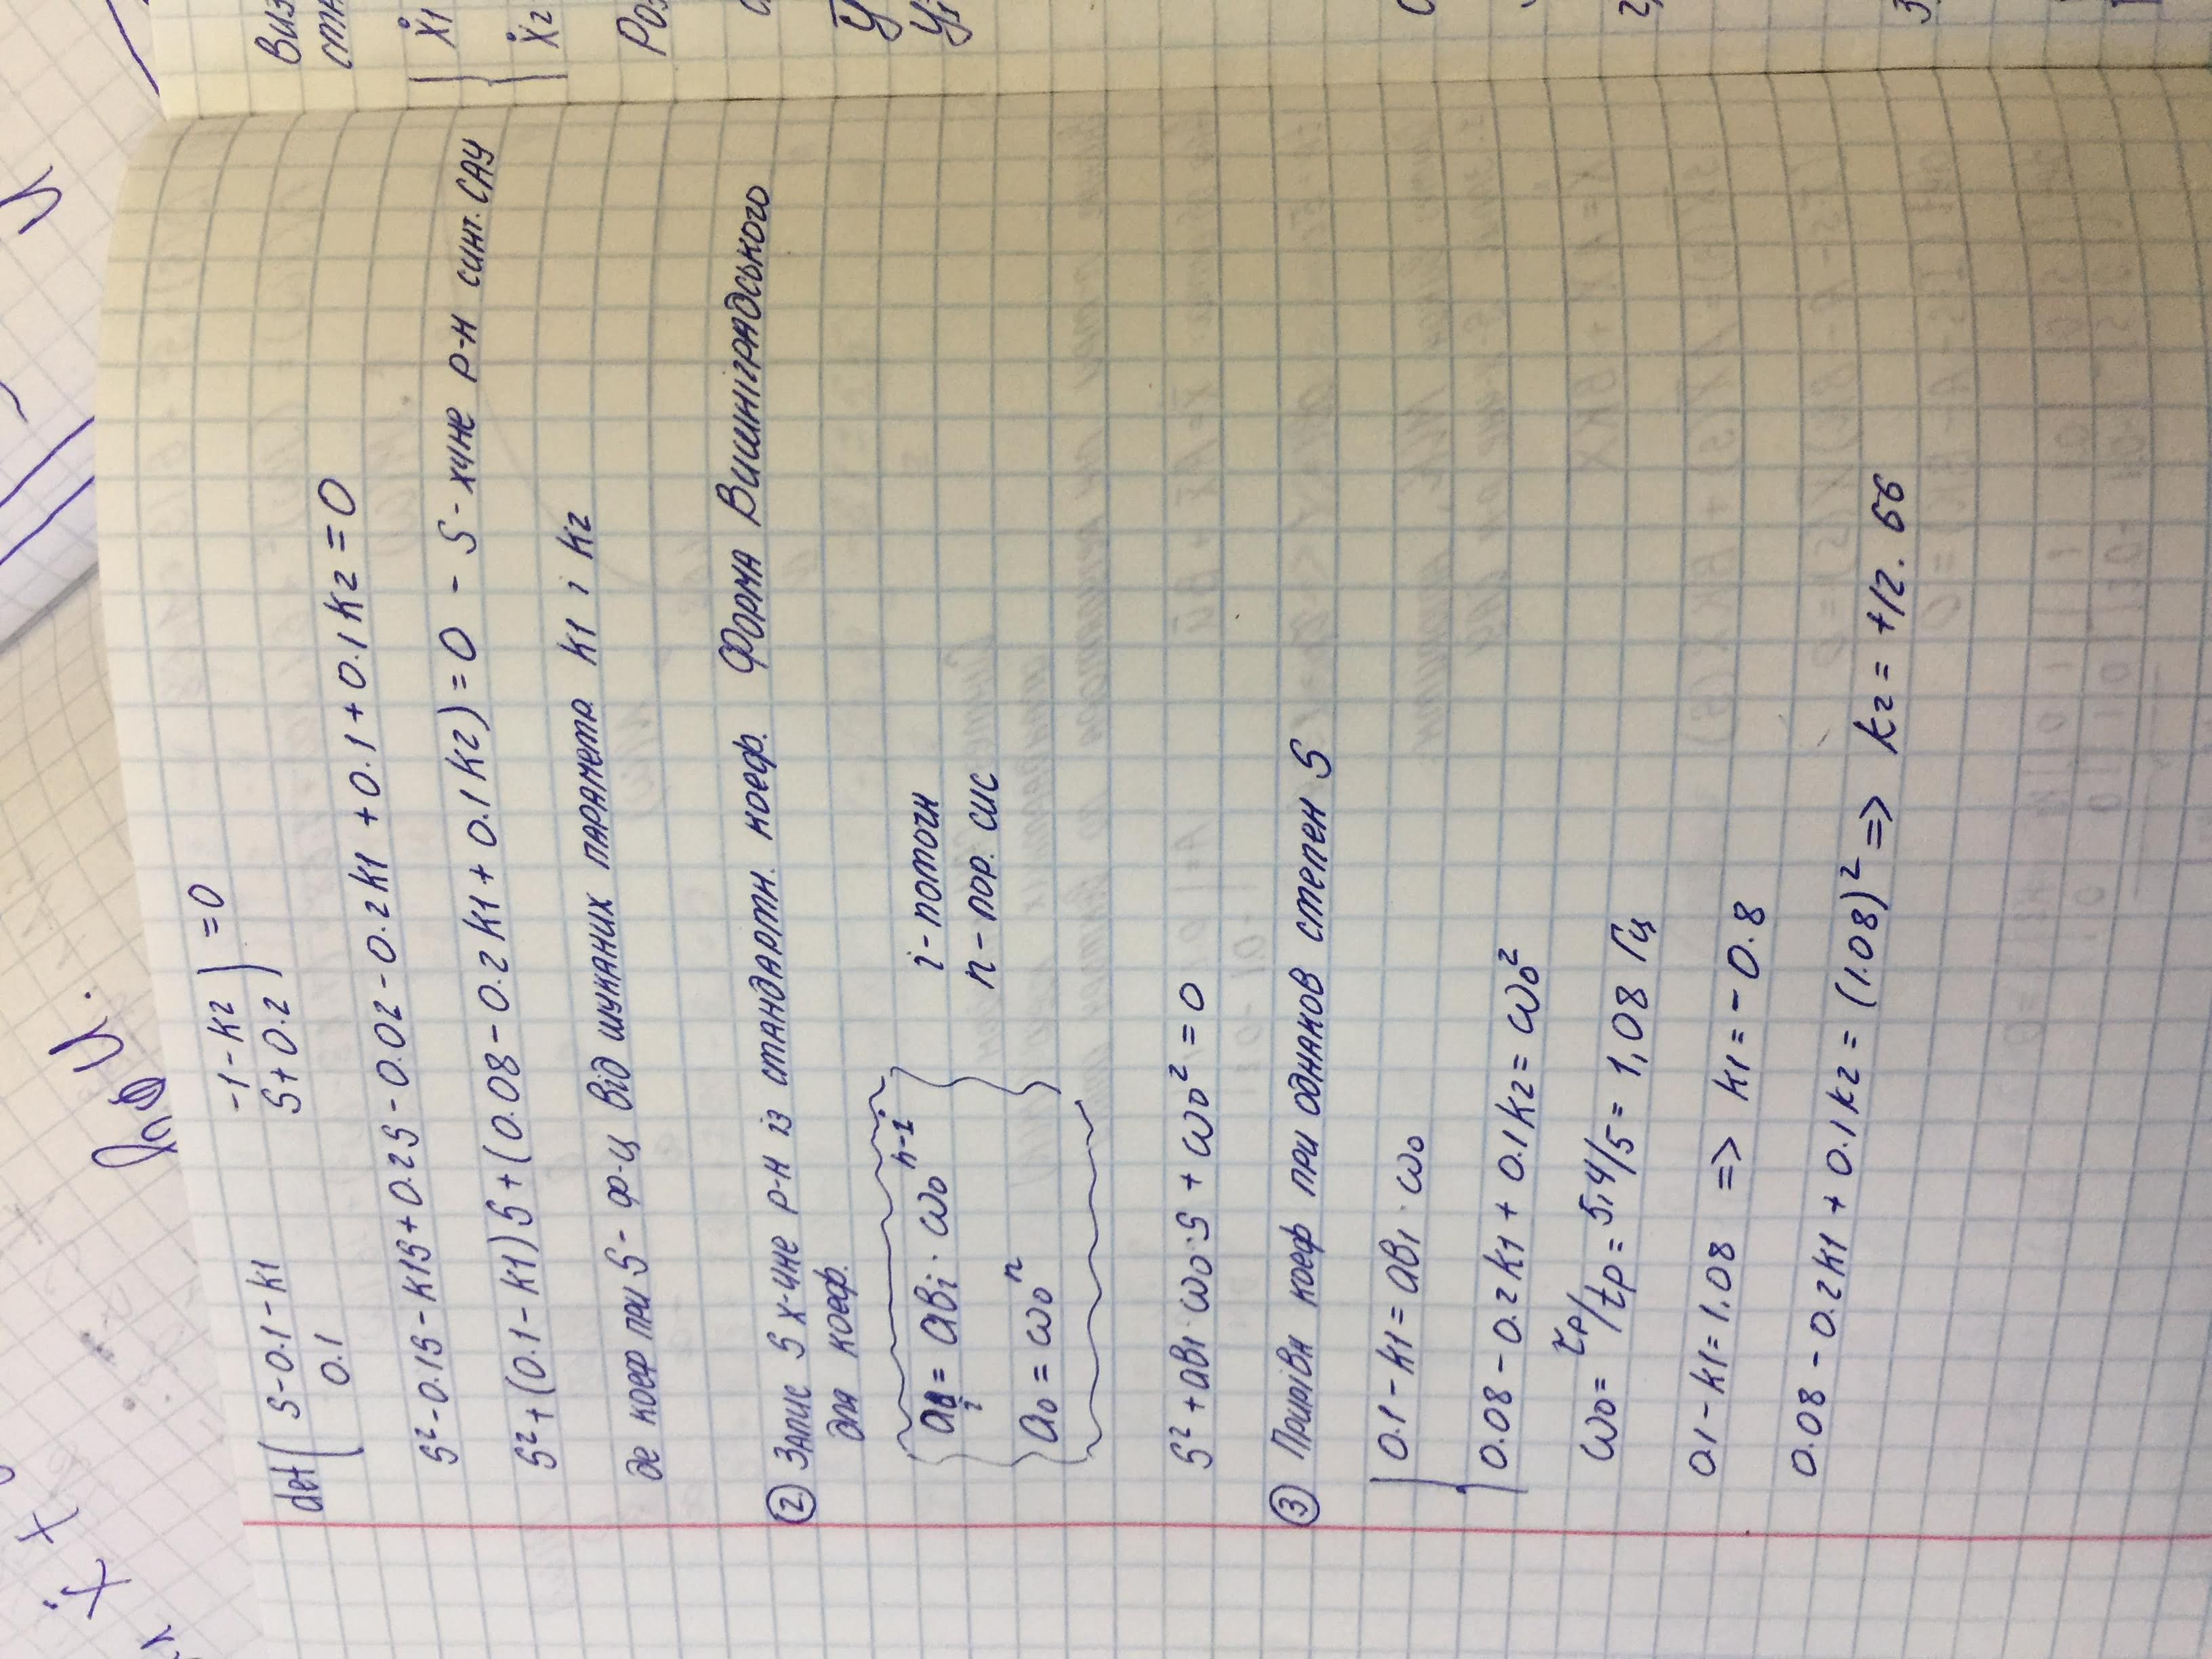 ẋ +
h₀ U.
U
det( S-0.1-k1 -1-k2 ) =0
0.1 S+0.2
S²-0.1S-k1S+0.2S-0.02-0.2k1+0.1+0.1k2=0
S²+(0.1-k1)S+(0.08-0.2k1+0.1k2)=0 - S-хчне р-н синт. САУ
де коеф при S- ф-ц від шуканих параметр. k1 і k2
② Запис S х-чне р-н із стандартн. коеф. Форма Вишніградського
для коеф.
ai = aвi · ω0^n-i i-поточн
n-пор. сис
a0 = ω0^n
S²+aв1·ω0·S+ω0²=0
③ Прирівн коеф при однаков степен S
0.1-k1=aв1·ω0
0.08-0.2k1+0.1k2=ω0²
ω0=τp/tp=5,4/5=1,08 Гц
0.1-k1=1.08 => k1=-0.8
0.08-0.2k1+0.1k2=(1.08)² => k2=+12.66
Виз
ста
ẋ1
ẋ2
Роз
y
y1